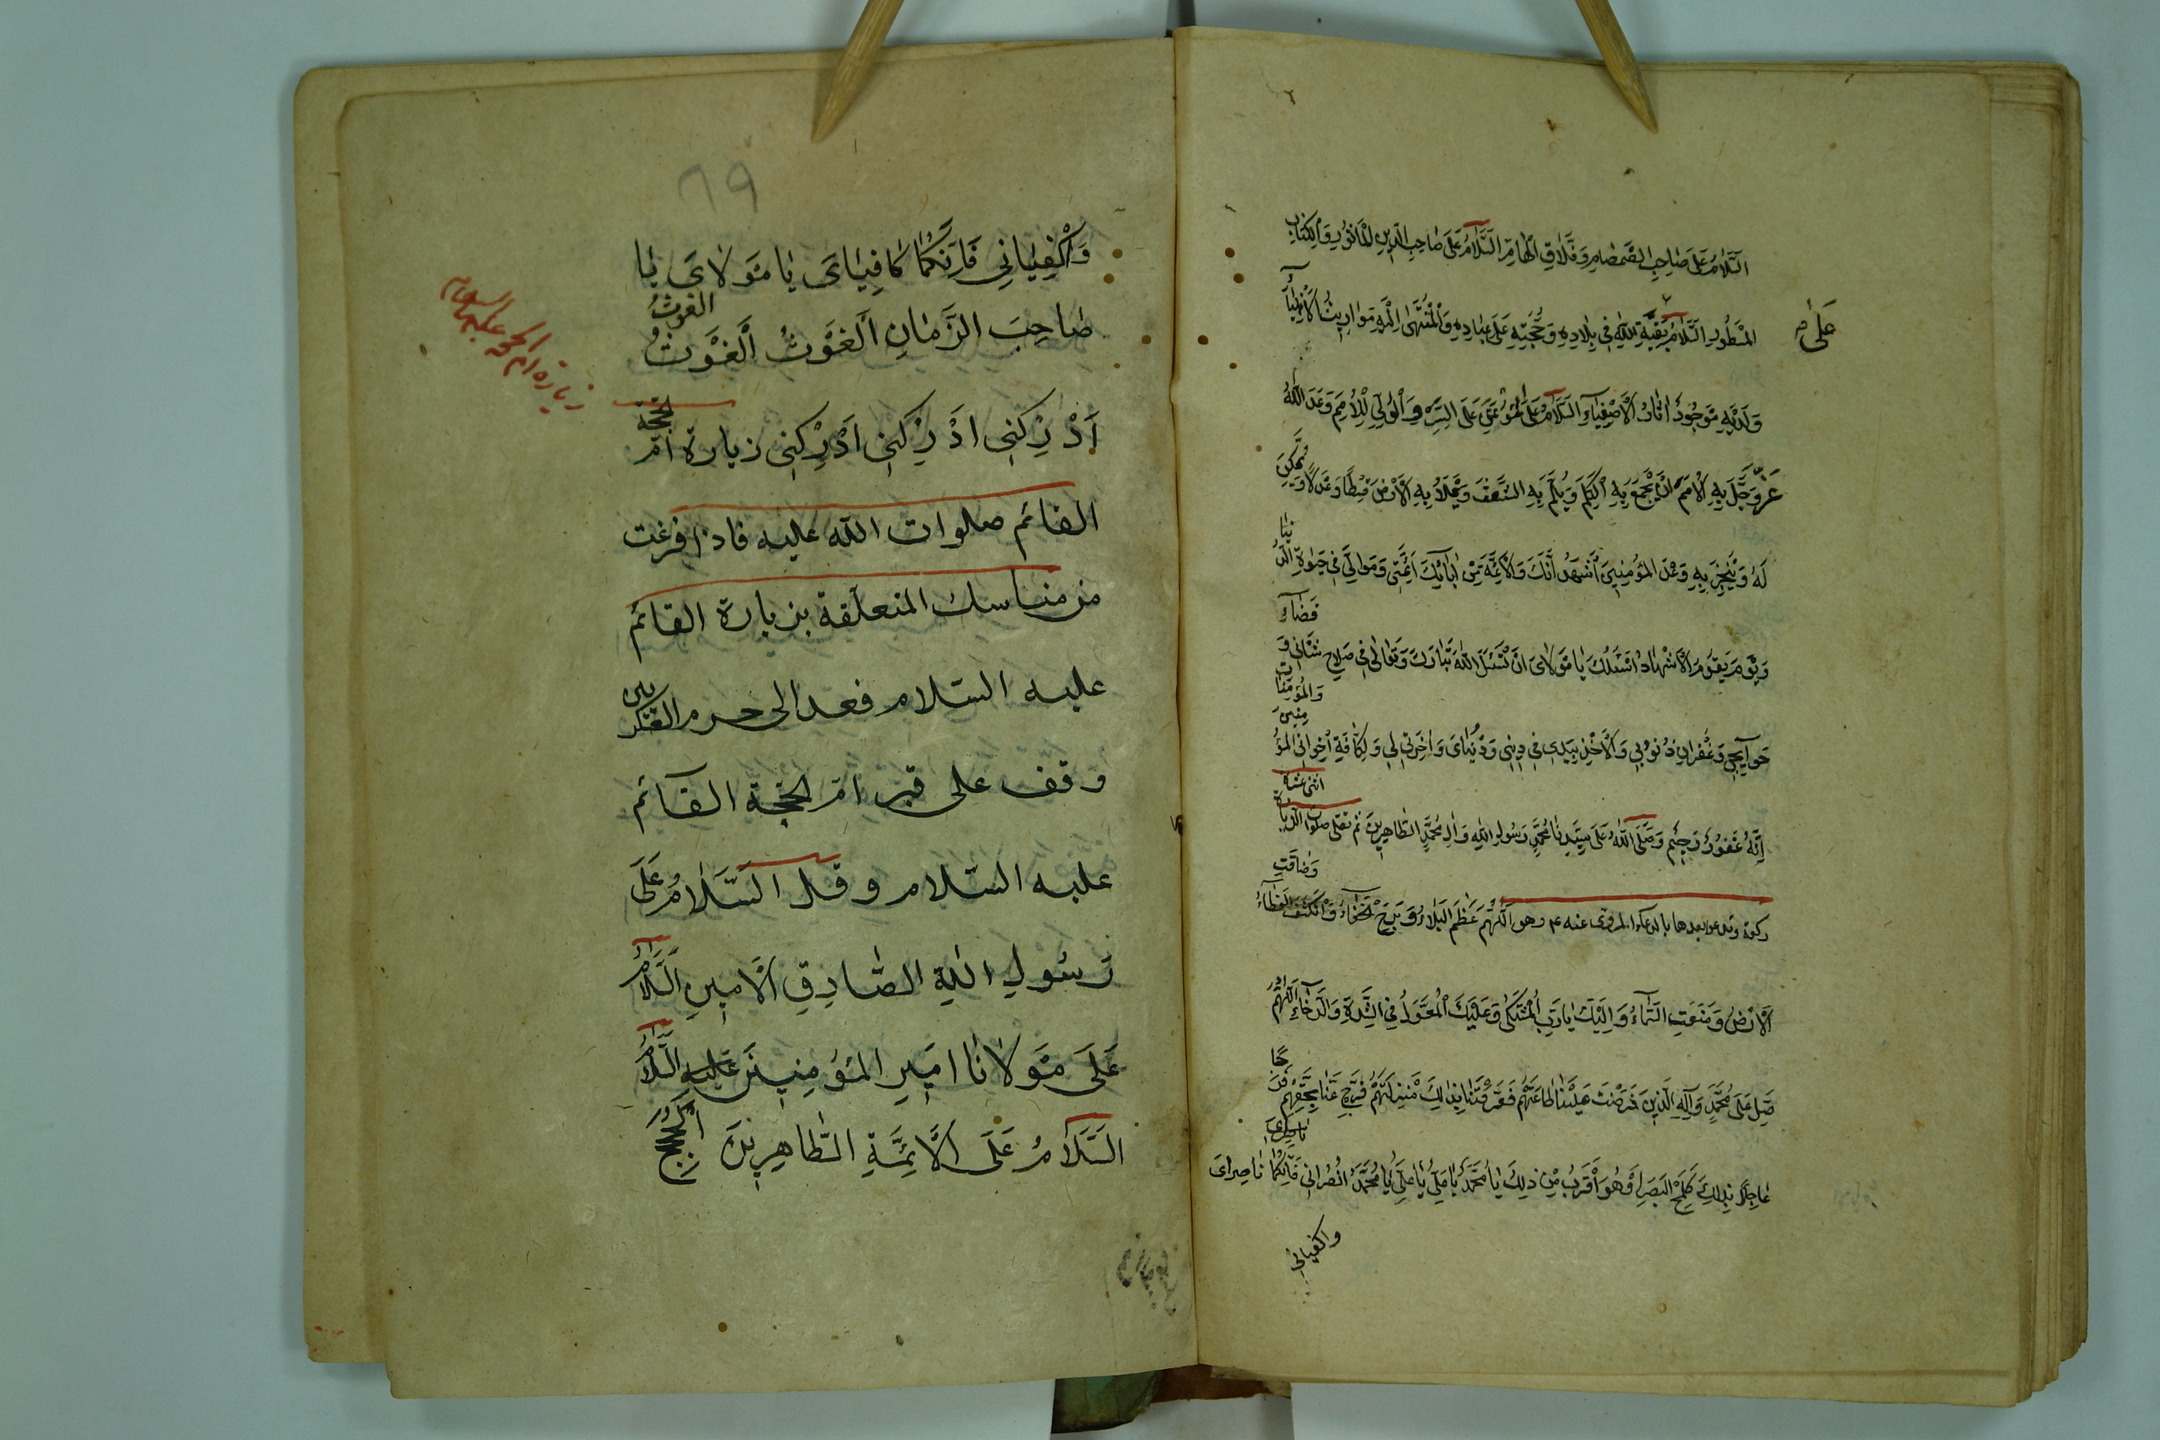 السَّلامُ عَلَى صَاحِبِ الصَّمْصَامِ وَفَلَّاقِ الْهَامِ السَّلَامُ عَلَى صَاحِبِ الدِّينِ الْمَأْثُورِ وَالْكِتَابِ
عَلىٰ م
الْمَسْطُورِ السَّلَامُ بَقِيَّةِ اللّٰهِ فِي بِلَادِهِ وَحُجَّتِهِ عَلَى عِبَادِهِ وَالْمُنْتَهَى اِلَيْهِ مَوَارِيثُ الْأَنْبِيَاءِ
وَلَدَيْهِ مَوْجُودٌ اٰثَارُ الْأَصْفِيَاءِ السَّلَامُ عَلَى الْمُؤْتَمَنِ عَلَى السِّرِّ وَالْوَلِيِّ لِلْأَمْرِ وَعَدَ اللّٰهُ
عَزَّ وَجَلَّ بِهِ الْأُمَمَ اَنْ يَجْمَعَ بِهِ الْكَلِمَ وَيَلُمَّ بِهِ الشَّعَثَ وَيَمْلَأَ بِهِ الْأَرْضَ قِسْطًا وَعَدْلًا وَيُمَكِّنَ
لَهُ وَيُنْجِزَ بِهِ وَعْدَ الْمُؤْمِنِينَ اَشْهَدُ اَنَّكَ وَالْأَئِمَّةَ مِنْ اٰبَائِكَ اَئِمَّتِي وَمَوَالِيَّ فِي حَيٰوةِ الدُّنْيَا
وَيَوْمَ يَقُومُ الْأَشْهَادُ اَسْئَلُكَ يَا مَوْلَايَ اَنْ تَسْئَلَ اللّٰهَ تَبَارَكَ وَتَعَالٰى فِي صَلَاحِ شَأْنِي وَقَضَاءِ
حَوَائِجِي وَغُفْرَانِ ذُنُوبِي وَالْأَخْذِ بِيَدِي فِي دِينِي وَدُنْيَايَ وَاٰخِرَتِي لِي وَلِكَافَّةِ اِخْوَانِيَ الْمُؤْمِنِينَ وَالْمُؤْمِنَاتِ
اِنَّهُ غَفُورٌ رَحِيمٌ وَصَلَّى اللّٰهُ عَلَى سَيِّدِنَا مُحَمَّدٍ رَسُولِ اللّٰهِ وَاٰلِ مُحَمَّدٍ الطَّاهِرِينَ ثم تصلى صلوات الزيارة اثنى عشرة
ركعة وتدعو بعدها بالدعاء المروى عنه ع وهو اَللّٰهُمَّ عَظُمَ الْبَلَاءُ وَبَرِحَ الْخَفَاءُ وَانْكَشَفَ الْغِطَاءُ وَضَاقَتِ
الْأَرْضُ وَمَنَعَتِ السَّمَاءُ وَاِلَيْكَ يَا رَبِّ الْمُشْتَكٰى وَعَلَيْكَ الْمُعَوَّلُ فِي الشِّدَّةِ وَالرَّخَاءِ اَللّٰهُمَّ
صَلِّ عَلَى مُحَمَّدٍ وَاٰلِهِ الَّذِينَ فَرَضْتَ عَلَيْنَا طَاعَتَهُمْ فَعَرَّفْتَنَا بِذٰلِكَ مَنْزِلَتَهُمْ فَرِّجْ عَنَّا بِحَقِّهِمْ فَرَجًا
عَاجِلًا بِذٰلِكَ كَلَمْحِ الْبَصَرِ اَوْ هُوَ اَقْرَبُ مِنْ ذٰلِكَ يَا مُحَمَّدُ يَا عَلِيُّ يَا عَلِيُّ يَا مُحَمَّدُ انْصُرَانِي فَاِنَّكُمَا نَاصِرَايَ
واكفيانى
٦٩
وَاكْفِيَانِي فَاِنَّكُمَا كَافِيَايَ يَا مَوْلَايَ يَا
صَاحِبَ الزَّمَانِ اَلْغَوْثُ اَلْغَوْثُ الغوثُ
اَدْرِكْنِي اَدْرِكْنِي اَدْرِكْنِي زيارة امّ الحجّة
القائم صلوات اللّه عليه فاذا فرغت
من مناسك المتعلقة بزيارة القائم
عليه السّلام فعد الى حرم العسكريين
وقف على قبر امّ الحجّة القآئم
عليه السّلام وقل السَّلَامُ عَلَى
رَسُولِ اللّٰهِ الصَّادِقِ الْأَمِينِ اَلسَّلَامُ
عَلَى مَوْلَانَا اَمِيرِ الْمُؤْمِنِينَ اَلسَّلَامُ
السَّلَامُ عَلَى الْأَئِمَّةِ الطَّاهِرِينَ الْحُجَجِ
زيارة ام الحجة عليه السلام